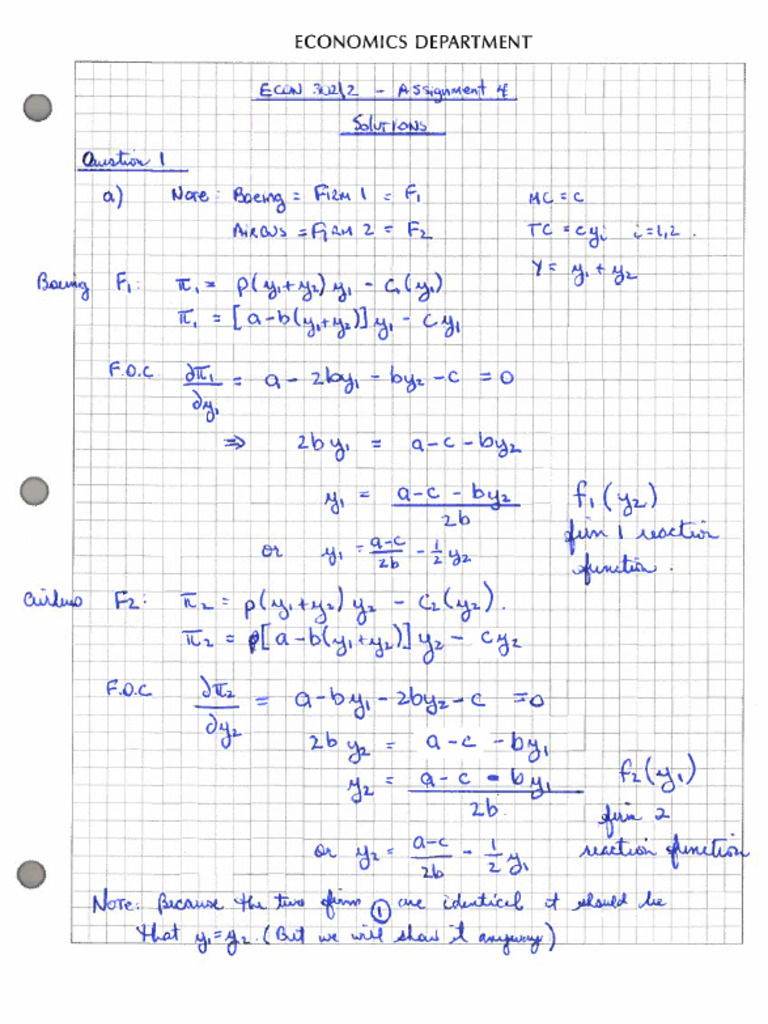 ECONOMICS DEPARTMENT
ECON 302/2 - Assignment 4
SOLUTIONS
Question 1
a) Note: Boeing = Firm 1 = F₁ MC = c
Airbus = Firm 2 = F₂ TC = cyᵢ i=1,2.
Y = y₁ + y₂
Boeing F₁: π₁ = p(y₁+y₂) y₁ - C₁(y₁)
π₁ = [a-b(y₁+y₂)] y₁ - cy₁
F.O.C ∂π₁/∂y₁ = a - 2by₁ - by₂ - c = 0
⇒ 2by₁ = a-c-by₂
y₁ = (a-c-by₂)/2b f₁(y₂)
firm 1 reaction
function.
or y₁ = (a-c)/2b - ½y₂
Airbus F₂: π₂ = p(y₁+y₂) y₂ - C₂(y₂).
π₂ = [a-b(y₁+y₂)] y₂ - cy₂
F.O.C ∂π₂/∂y₂ = a-by₁-2by₂-c = 0
2by₂ = a-c-by₁
y₂ = (a-c-by₁)/2b f₂(y₁)
firm 2
or y₂ = (a-c)/2b - ½y₁ reaction function
Note: Because the two firms ① are identical it should be
that y₁=y₂. (But we will show it anyway)